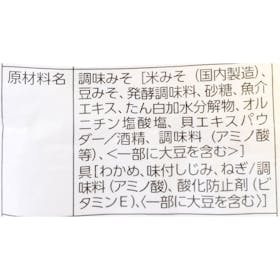 原材料名
調味みそ[米みそ(国内製造)、
豆みそ、発酵調味料、砂糖、魚介
エキス、たん白加水分解物、オル
ニチン塩酸塩、貝エキスパウ
ダー/酒精、調味料(アミノ酸
等)、<一部に大豆を含む>]
具[わかめ、味付しじみ、ねぎ/調
味料(アミノ酸)、酸化防止剤(ビ
タミンE)、<一部に大豆を含む>]